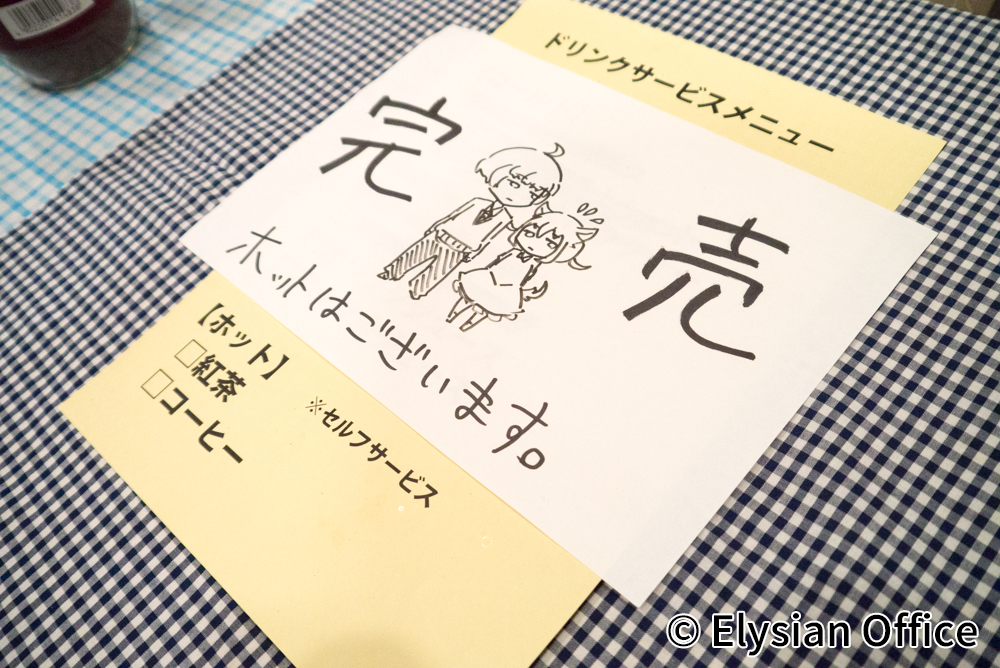 ドリンクサービスメニュー
完売
ホットはございます。
【ホット】
□紅茶
□コーヒー
※セルフサービス
© Elysian Office